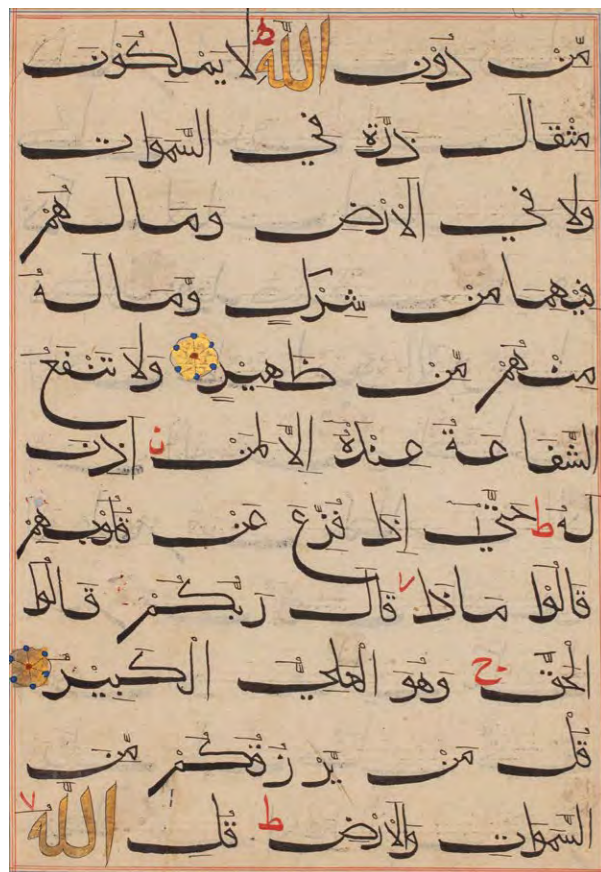 مِّنْ دُوْنِ اللّٰهِ ۚ ط لَا يَمْلِكُوْنَ
مِثْقَالَ ذَرَّةٍ فِي السَّمٰوَاتِ
وَلَا فِي الْاَرْضِ وَمَا لَهُمْ
فِيْهِمَا مِنْ شِرْكٍ وَّمَا لَهٗ
مِنْهُمْ مِّنْ ظَهِيْرٍ وَلَا تَنْفَعُ
الشَّفَاعَةُ عِنْدَهٗ اِلَّا لِمَنْ ن اَذِنَ
لَهٗ ط حَتّٰى اِذَا فُزِّعَ عَنْ قُلُوْبِهِمْ
قَالُوْا مَاذَا ۷ قَالَ رَبُّكُمْ قَالُوا
الْحَقَّ ج وَهُوَ الْعَلِيُّ الْكَبِيْرُ
قُلْ مَنْ يَّرْزُقُكُمْ مِّنَ
السَّمٰوَاتِ وَالْاَرْضِ ط قُلِ اللّٰهُ ۷